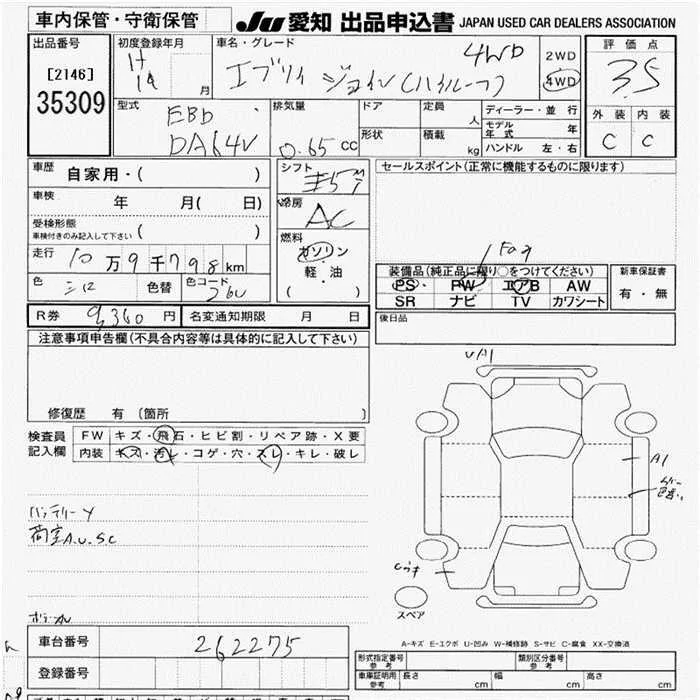 車内保管・守衛保管
JU 愛知 出品申込書 JAPAN USED CAR DEALERS ASSOCIATION
出品番号
[2146]
35309
初度登録年月
H
19 月
車名・グレード
エブリィ ジョイン(ハイルーフ) 4WD
2WD
4WD
評価点
3.5
外装 内装
C C
型式
EBD
DA64V
排気量
0.65 cc
ドア
形状
定員
人
積載
kg
ディーラー・並行
モデル年式 年
ハンドル 左・右
車歴 自家用・( )
車検 年 月( 日)
受検形態
車検付きのみ記入して下さい ( )
走行 10万9千798km
色 色替 色コード
シフト
冷房
AC
燃料
ガソリン
・
軽・油
( )
セールスポイント(正常に機能するものに限ります)
装備品(純正品に限り○をつけてください)
PS PW エアB AW
SR ナビ TV カワシート
新車保証書
有・無
後日品
R券 9,360円 名変通知期限 月 日
注意事項申告欄(不具合内容等は具体的に記入して下さい)
修復歴 有 〔箇所 〕
検査員
記入欄
FW キズ・飛石・ヒビ割・リペア跡・X要
内装 キズ・汚レ・コゲ・穴・スレ・キレ・破レ
バッテリーヤ
荷室A.U.S.C
UA1
A1
スペア
A-キズ E-エクボ U-凹み W-補修跡 S-サビ C-腐食 XX-交換済
車台番号 262275
登録番号
形式指定番号
参考
類別区分番号
参考
車庫証明用
参考
長さ cm 幅 cm 高さ cm